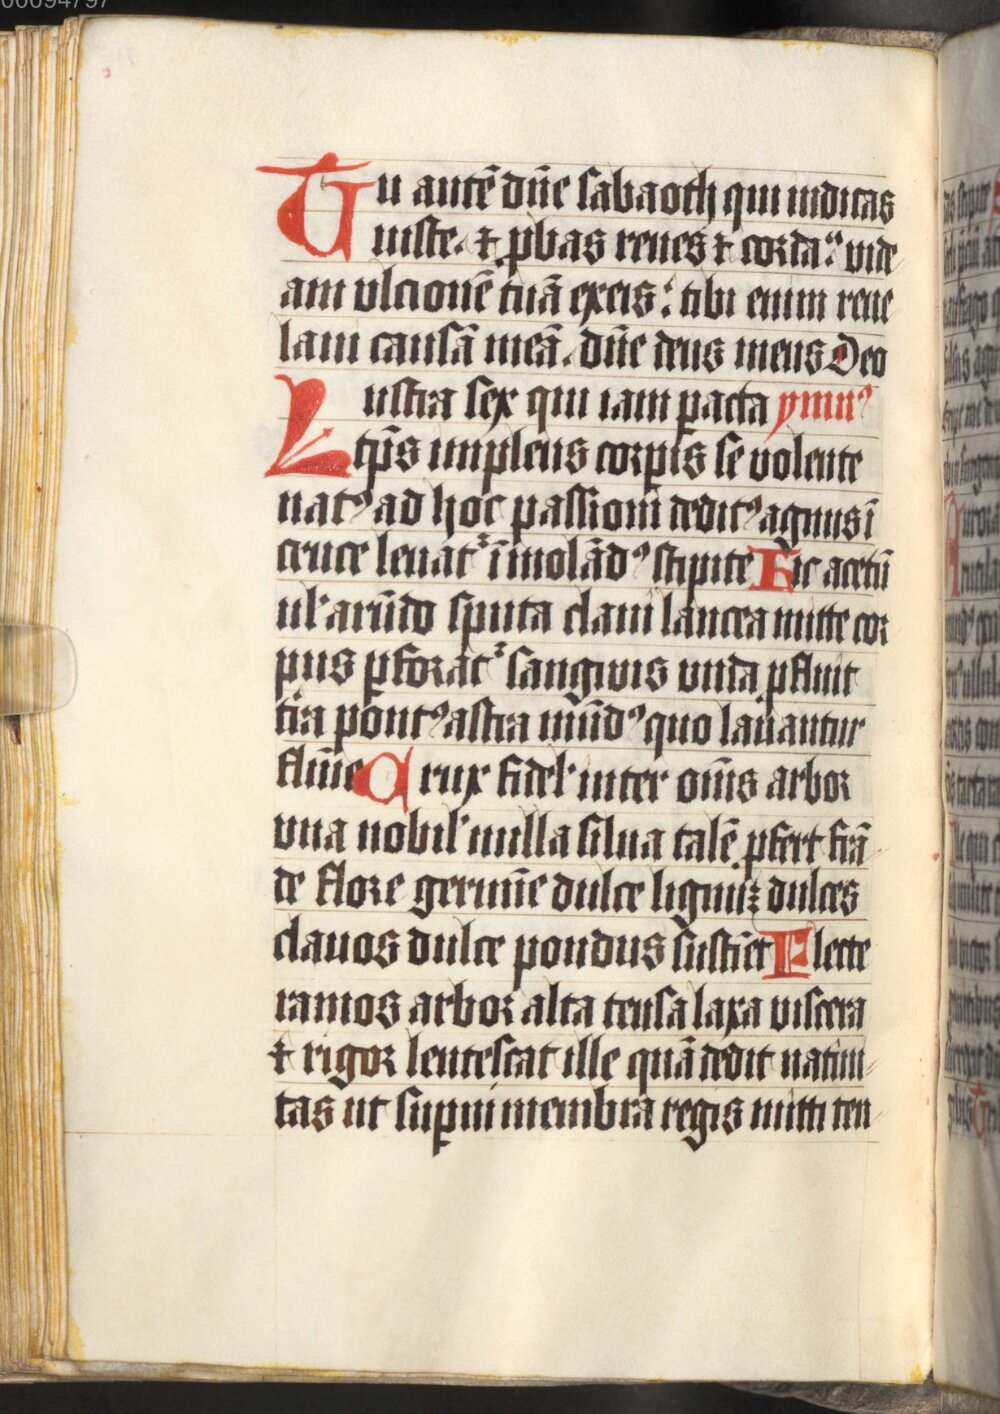 00094797
Tu autē dn̄e sabaoth qui iudicas
iuste. ⁊ ꝓbas renes ⁊ corda: vide
am vlcionē tuā ex eis: tibi enim reue
laui causā meā. dn̄e deus meus Deo
Lustra sex qui iam ꝑacta ymnꝰ
tp̄s implens corꝑis se volente
natꝰ ad hoc passioni deditꝰ agnus ī
cruce leuat᷑ īmolādꝰ stipite Hic acetū
fel arūdo sputa claui lancea mitte cor
pus ꝑforat᷑ sangwis vnda ꝓfluit
t̄ra pontꝰ astra mūdꝰ quo lauantur
flūīe Crux fidel' inter om̄s arbor
vna nobil' nulla silua talē ꝓfert frō
de flore germīe dulce lignūꝫ dulces
clauos dulce pondus sustīet Flecte
ramos arbor alta tensa laxa viscera
⁊ rigor lentescat ille quē dedit natiui
tas ut suꝑni membra regis miti ten